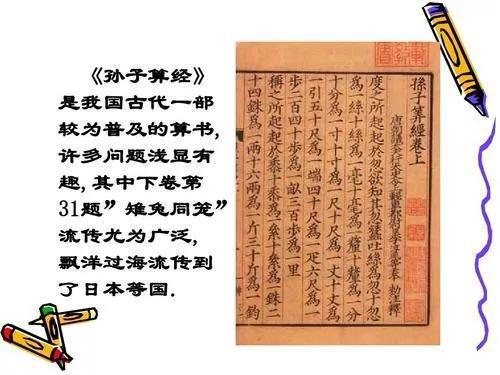 《孙子算经》
是我国古代一部
较为普及的算书,
许多问题浅显有
趣,其中下卷第
31题”雉兔同笼”
流传尤为广泛,
飘洋过海流传到
了日本等国.
孫子算經卷上
度之所起起於忽欲知其忽蠶吐絲爲忽十忽
爲一絲十絲爲一毫十毫爲一釐十釐爲一分
十分爲一寸十寸爲一尺十尺爲一丈十丈爲
一引五十尺爲一端四十尺爲一疋六尺爲一
步二百四十步爲一畝三百步爲一里
稱之所起起於黍十黍爲一絫十絫爲一銖二
十四銖爲一兩十六兩爲一斤三十斤爲一鈞